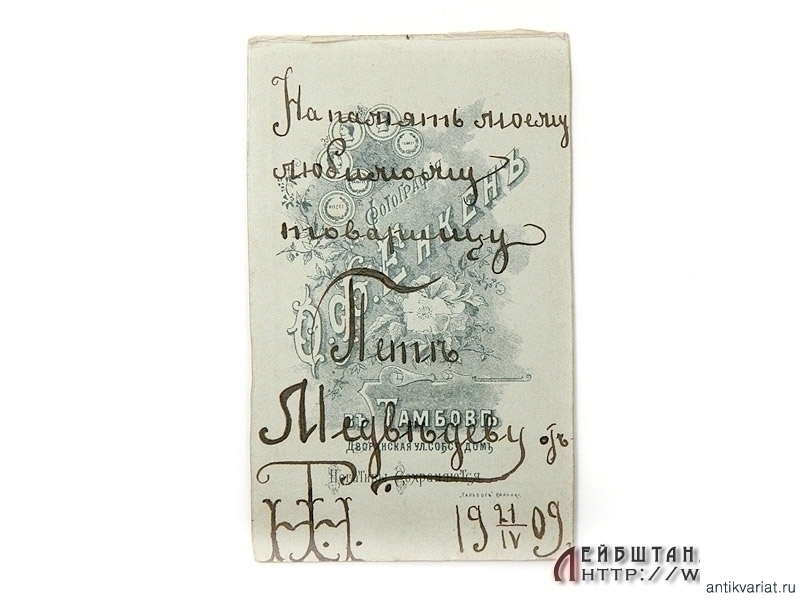 На память моему
любимому
товарищу
Петѣ
Медвѣдеву отъ
19 21/IV 09.
ФОТОГРАФІЯ
Ф. ЕНКЕНЪ
въ ТАМБОВѢ
ДВОРЯНСКАЯ УЛ. СОБС. ДОМЪ
Негативы Сохраняются
ЛЕЙБШТАН
HTTP://W
antikvariat.ru